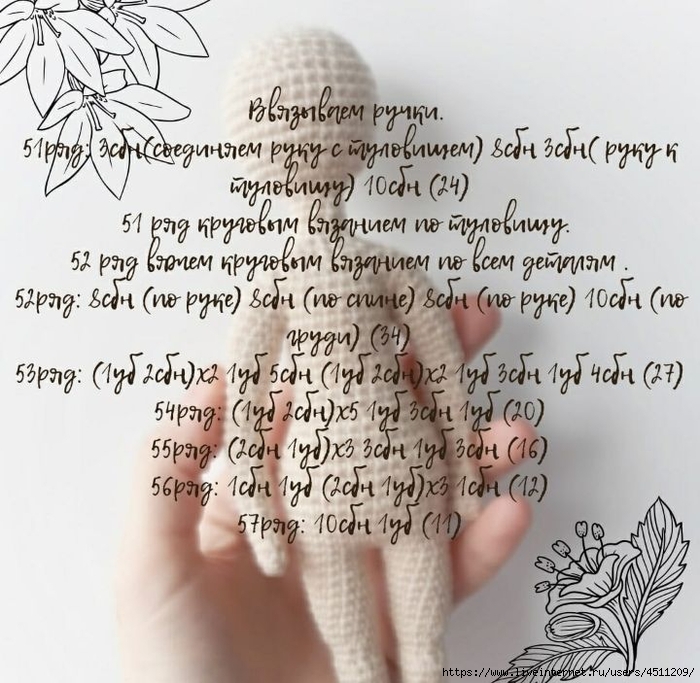 Ввязываем ручки.
51ряд: 3сбн(соединяем руку с туловищем) 8сбн 3сбн( руку к
туловищу) 10сбн (24)
51 ряд круговым вязанием по туловищу.
52 ряд вяжем круговым вязанием по всем деталям .
52ряд: 8сбн (по руке) 8сбн (по спине) 8сбн (по руке) 10сбн (по
груди) (34)
53ряд: (1уб 2сбн)х2 1уб 5сбн (1уб 2сбн)х2 1уб 3сбн 1уб 4сбн (27)
54ряд: (1уб 2сбн)х5 1уб 3сбн 1уб (20)
55ряд: (2сбн 1уб)х3 3сбн 1уб 3сбн (16)
56ряд: 1сбн 1уб (2сбн 1уб)х3 1сбн (12)
57ряд: 10сбн 1уб (11)
https://www.liveinternet.ru/users/4511209/